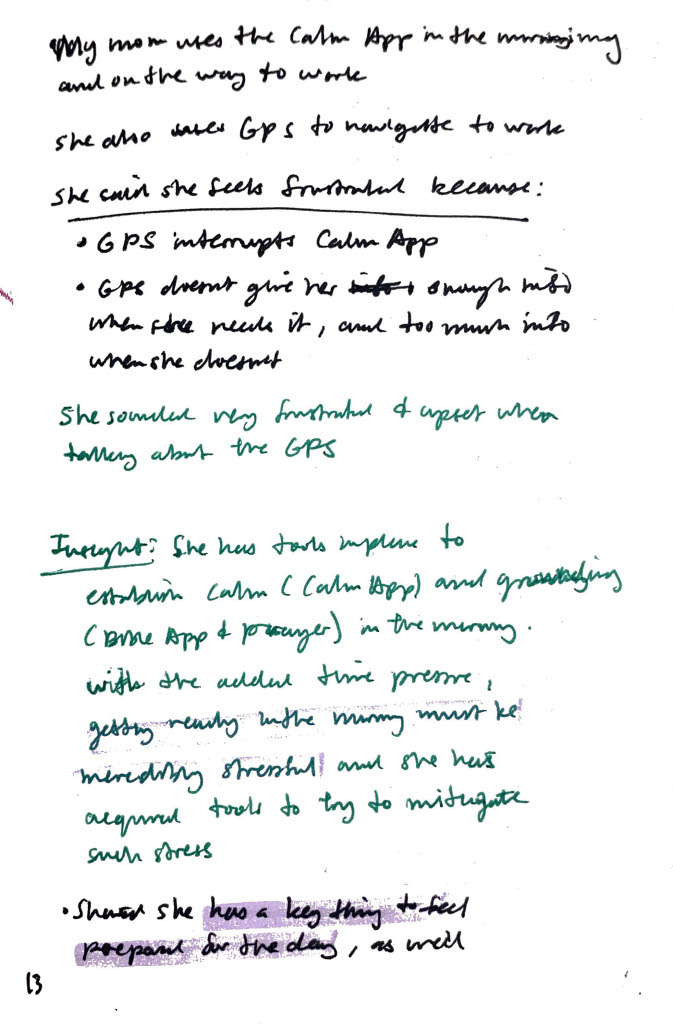 My mom uses the Calm App in the morning
and on the way to work
She also uses GPS to navigate to work
She said she feels frustrated because:
• GPS interrupts Calm App
• GPS doesnt give her enough info
when she needs it, and too much info
when she doesnt
She sounded very frustrated & upset when
talking about the GPS
Insight: She has tools in place to
establish calm (Calm App) and grounding
(Bible App & prayer) in the morning.
with the added time pressure,
getting ready in the morning must be
incredibly stressful and she has
acquired tools to try to mitigate
such stress
• Shared she has a key thing to feel
prepared for the day, as well
13